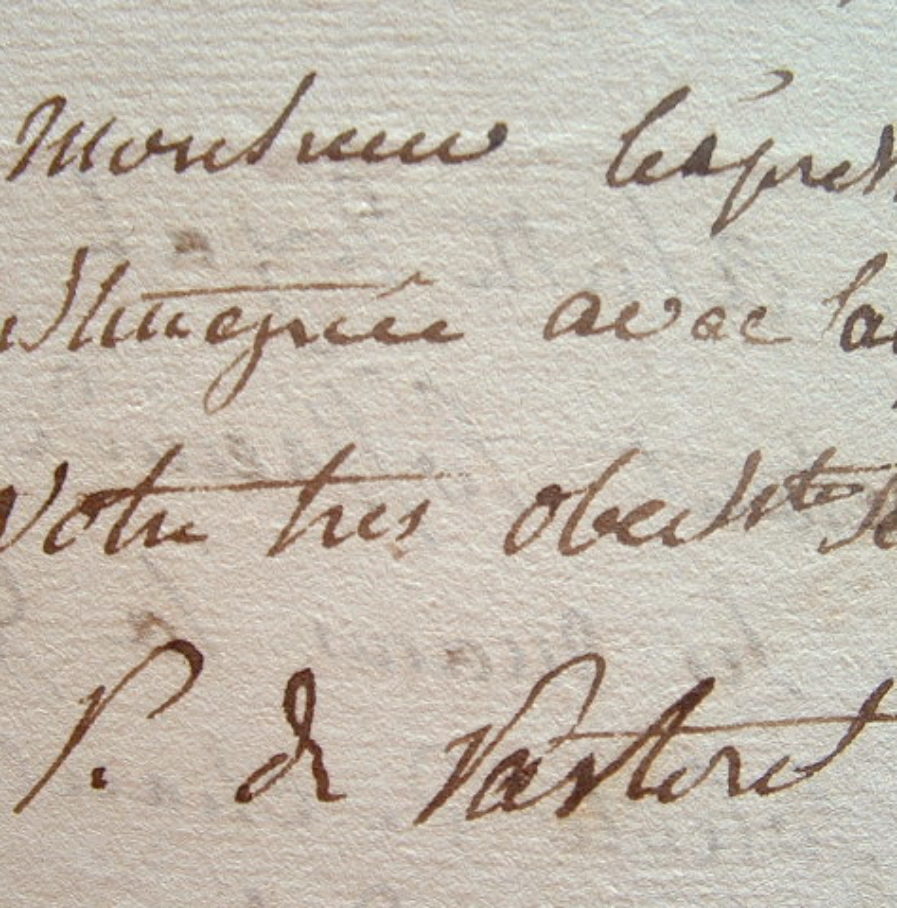 Monsieur l'expres
distinguée avec la
Votre tres obeist se
P. de Pastoret